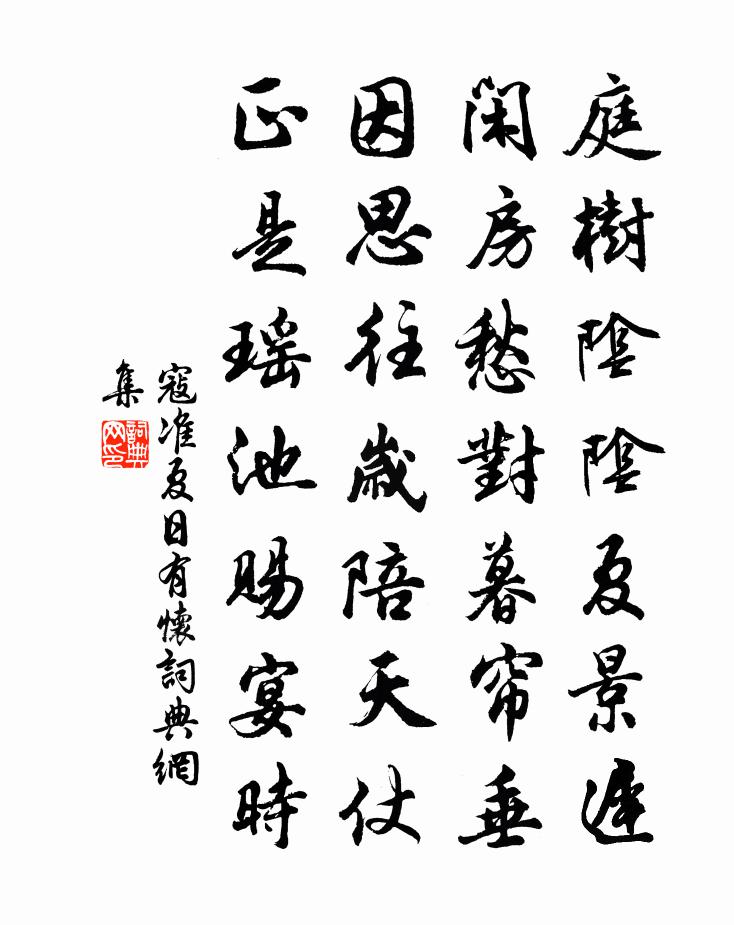 庭樹陰陰夏景遲
閑房愁對暮帘垂
因思往歲陪天仗
正是瑶池賜宴時
寇准夏日有懷詞典網
集
詞典
网印